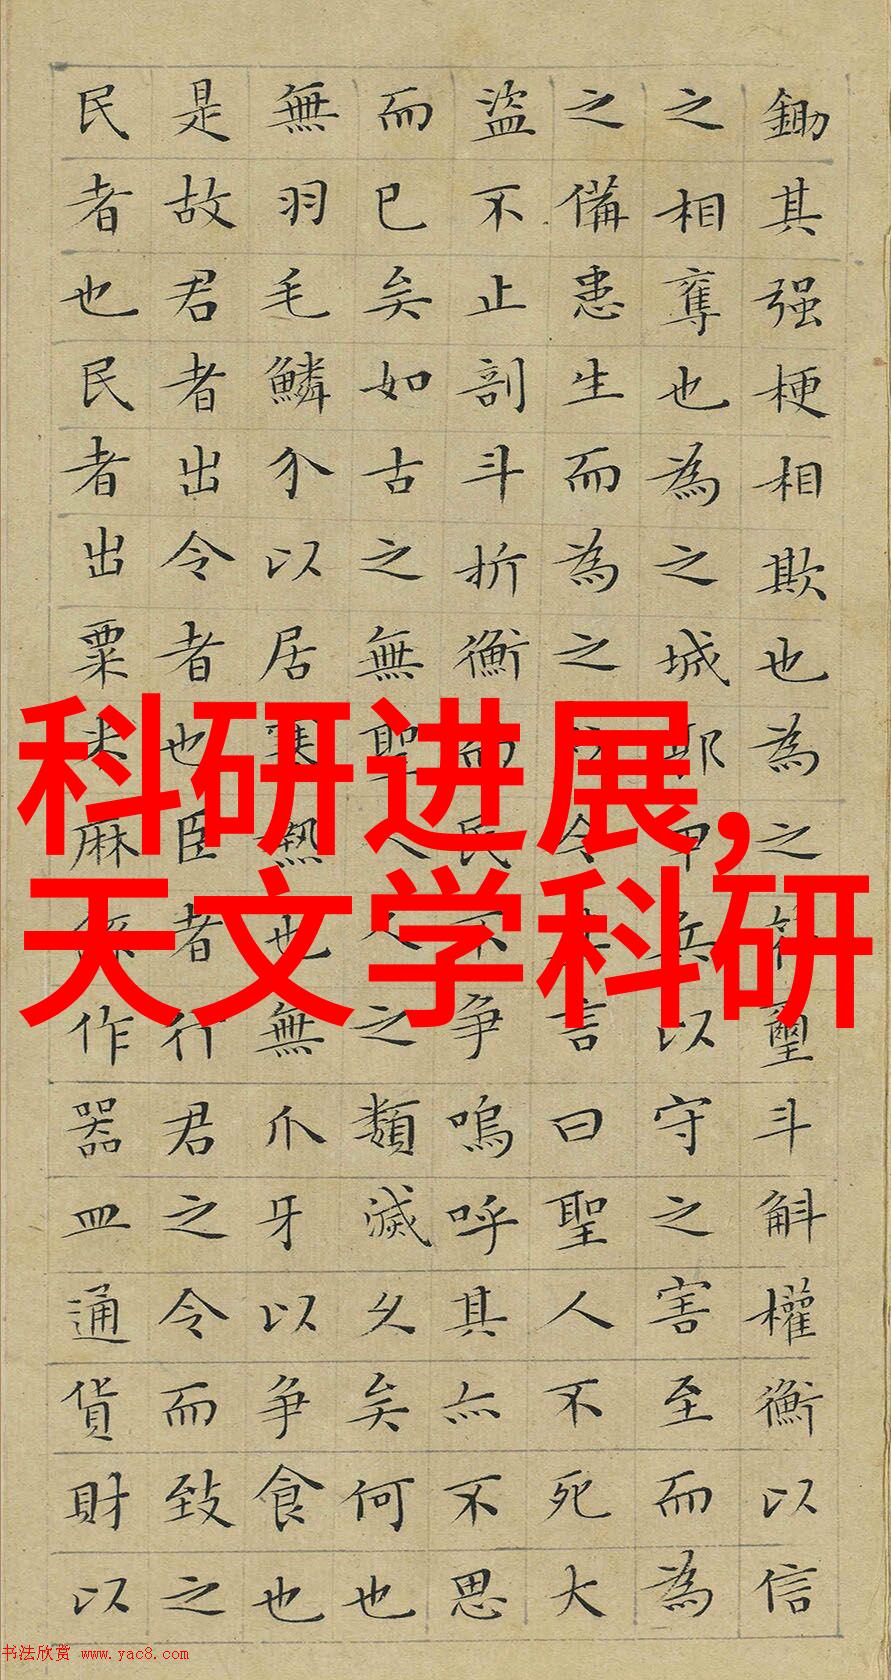 鋤其强梗相欺也為之璽斗斛權衡以信
之相奪也為之城郭甲兵以守之害至而為
之備患生而為之今言曰聖人不死大
盜不止剖斗折衡而民不争嗚呼其亦不思
而已矣如古之無聖人人之類滅久矣何也
無羽毛鱗介以居寒熱也無爪牙以争食也
是故君者出令者也臣者行君之令而致之
民者也民者出粟米麻絲作器皿通貨財以
科研进展,
天文学科研
书法欣赏 www.yac8.com